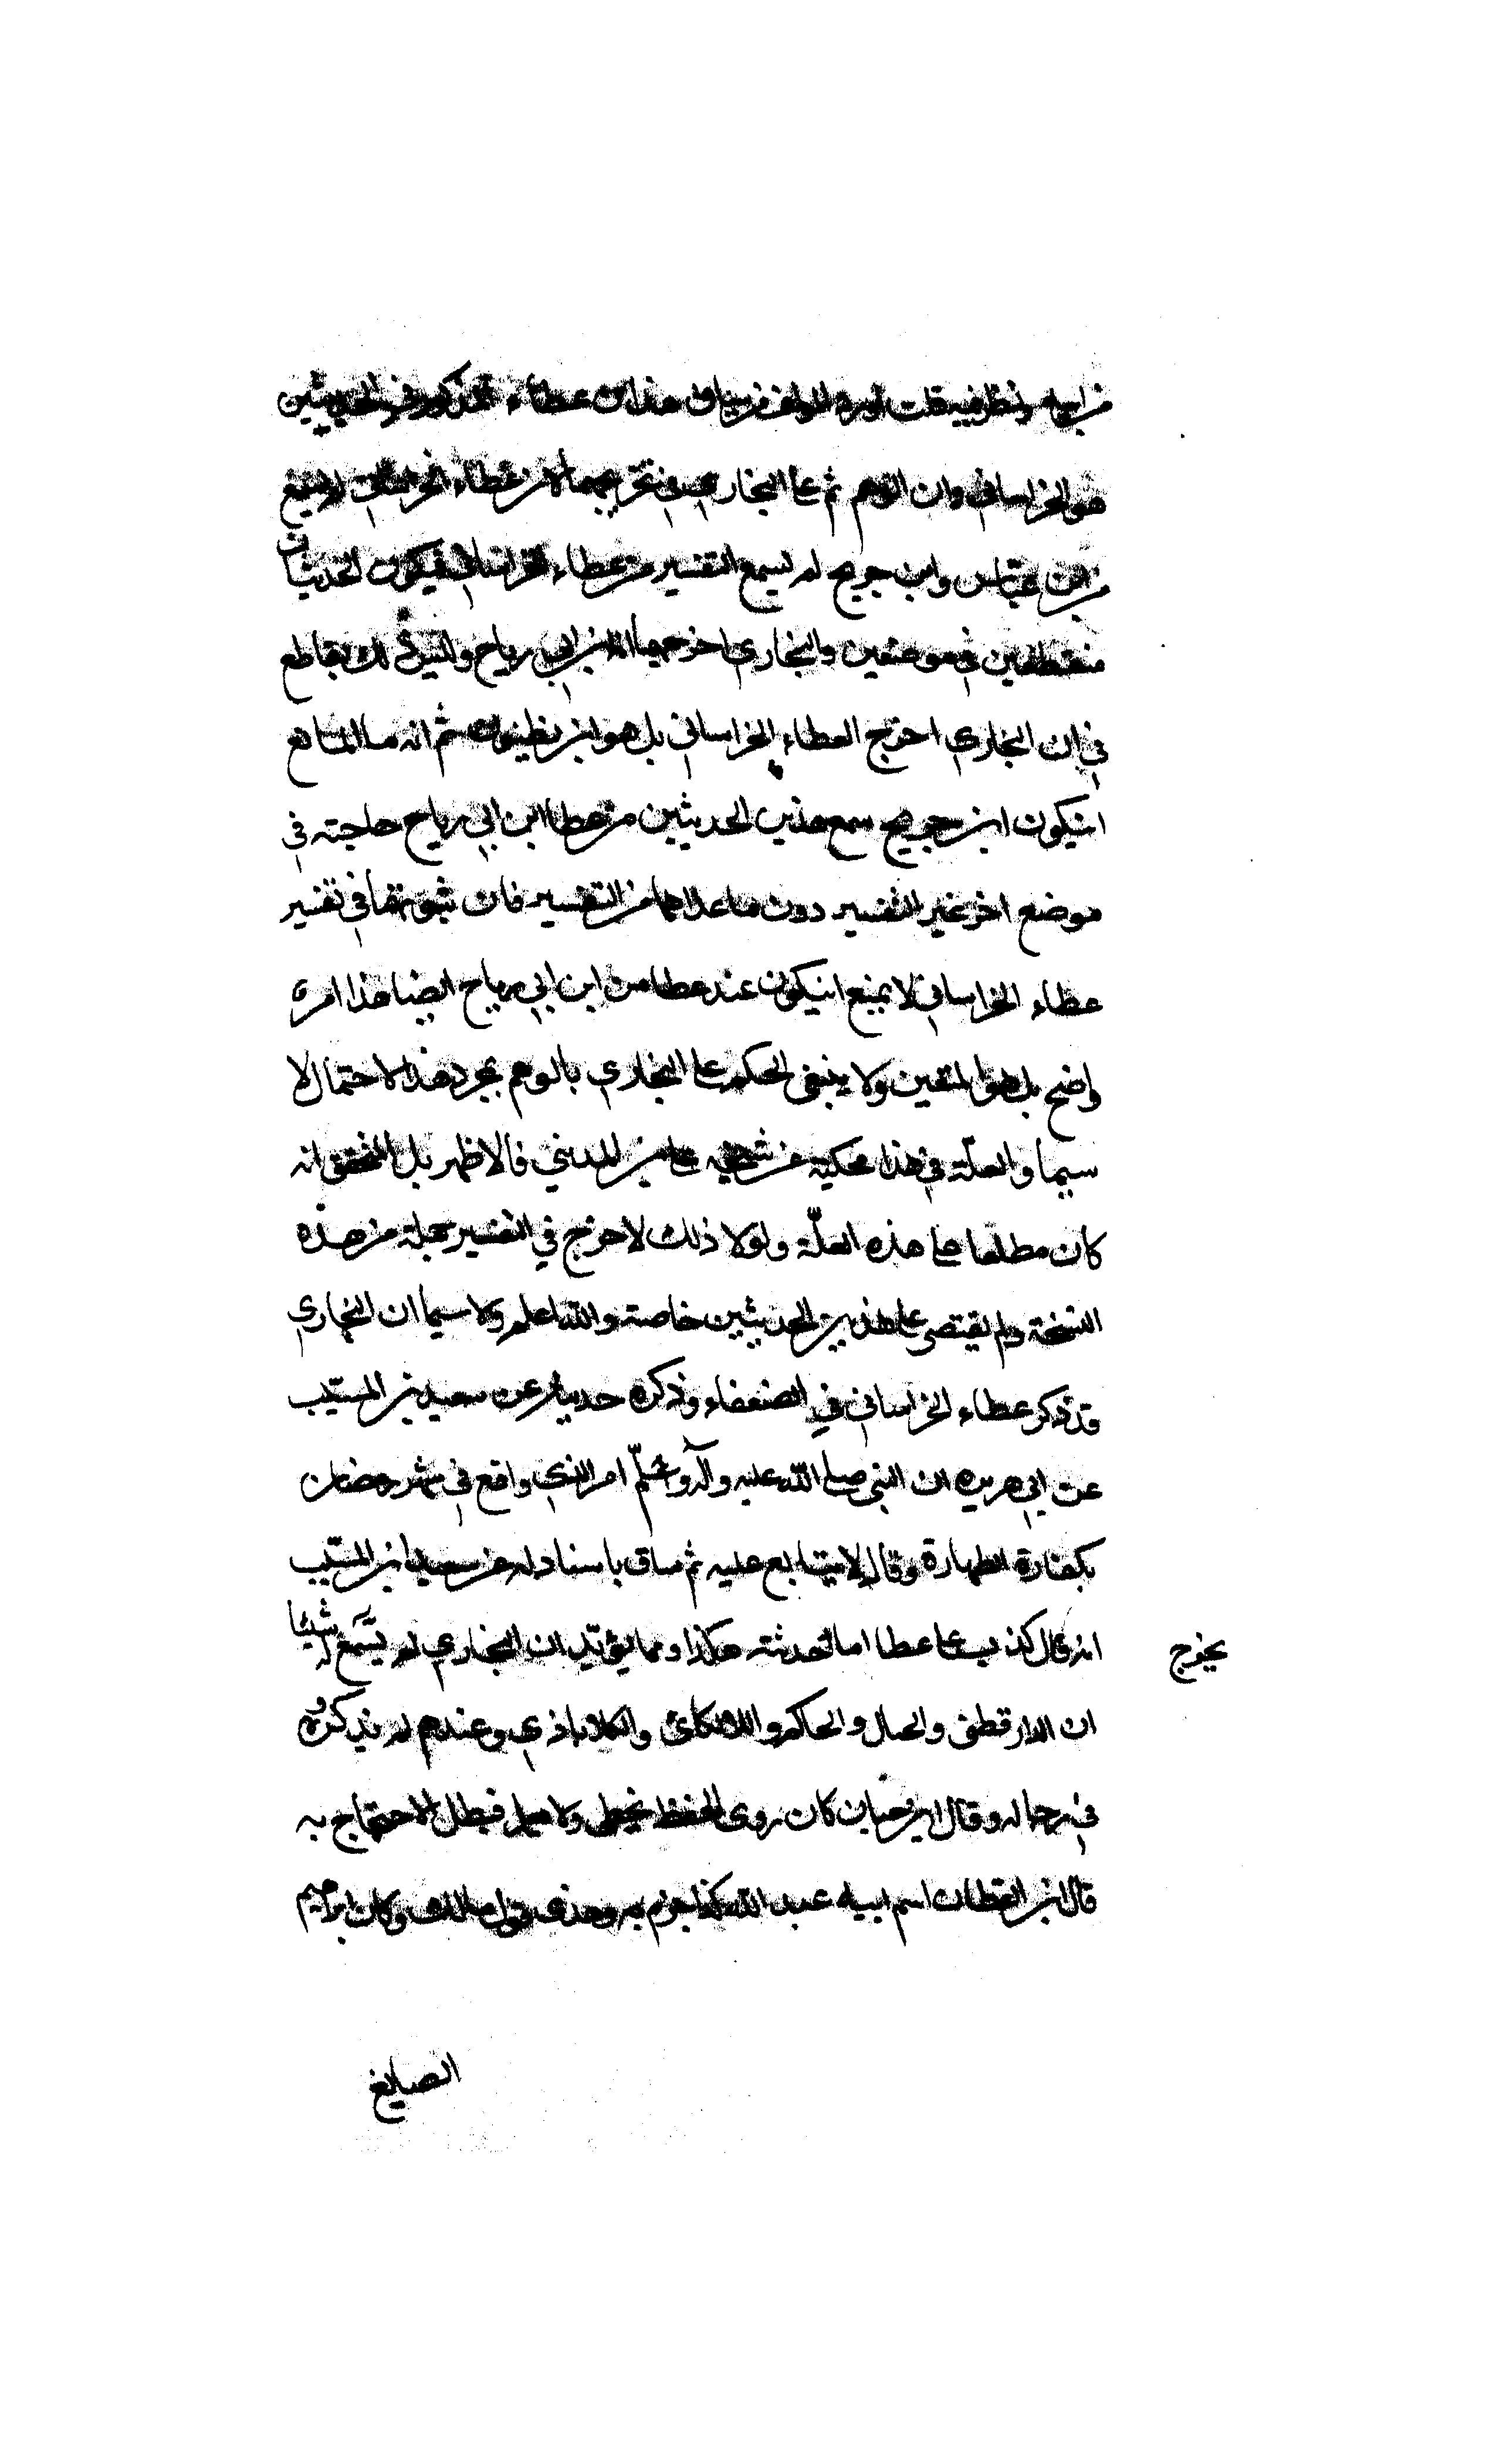 من اجله ونظر فيه قلت اورده المؤلف من سياق هذا ان عطاء المذكور في الحديثين
هو الخراساني وان الوهم تم على البخاري في تخريجهما لان عطاء الخراساني لم يسمع
من ابن عباس وابن جريج لم يسمع التفسير من عطاء الخراساني فيكون الحديثان
منقطعين في موضعين والبخاري اخرجهما لابن ابي رياح وليس ذلك بقاطع
في ان البخاري اخرج العطاء الخراساني بل هو ابن ثم انه ما المانع
انيكون ابن جريج سمع هذين الحديثين من عطا ابن ابي رياح حاجته في
موضع اخر غير التفسير دون ما عداهما من التفسير فان ثبوتهما في تفسير
عطاء الخراساني لا يمنع انيكون عند عطا من ابن ابي رياح ايضا هذا امر
واضح بل هو المتعين ولا ينبغي الحكم على البخاري بالوهم بمجرد هذا الاحتمال لا
سيما والعلّة في هذا محكية عن شيخه على بن المديني فالاظهر بل المحقق انه
كان مطلعا على هذه العلّة ولولا ذلك لاخرج في التفسير جملة من هذه
النسخة ولم يقتصى على هذين الحديثين خاصة والله اعلم ولا سيما ان البخاري
قد ذكر عطاء الخراساني في الضعفاء وذكره حديثه عن سعيد بن المسيّب
عن ابي هريره ان النبي صلى الله عليه وآله وسلّم امر الذي واقع في شهر رمضان
بكفارة الظهارة وقال لا يتابع عليه ثم ساق باسناد له عن سعيد ابن المسيّب
انه قال كذب على عطا اما تحدثته هكذا ومما يؤيّد ان البخاري لم يسمع له شيئا
يخرج
ان الدارقطنى والحال والحاكم واللالكائ والكلاباذي وعندهم لم يذكروه
في رجاله وقال ابن حبان كان روى الحفظ يخطى ولا يعلم فبطل الاحتجاج به
قال ابن القطان اسم ابيه عبد الله كذا جزم به وحذف قول مالك وكان ابراهيم
الصايغ